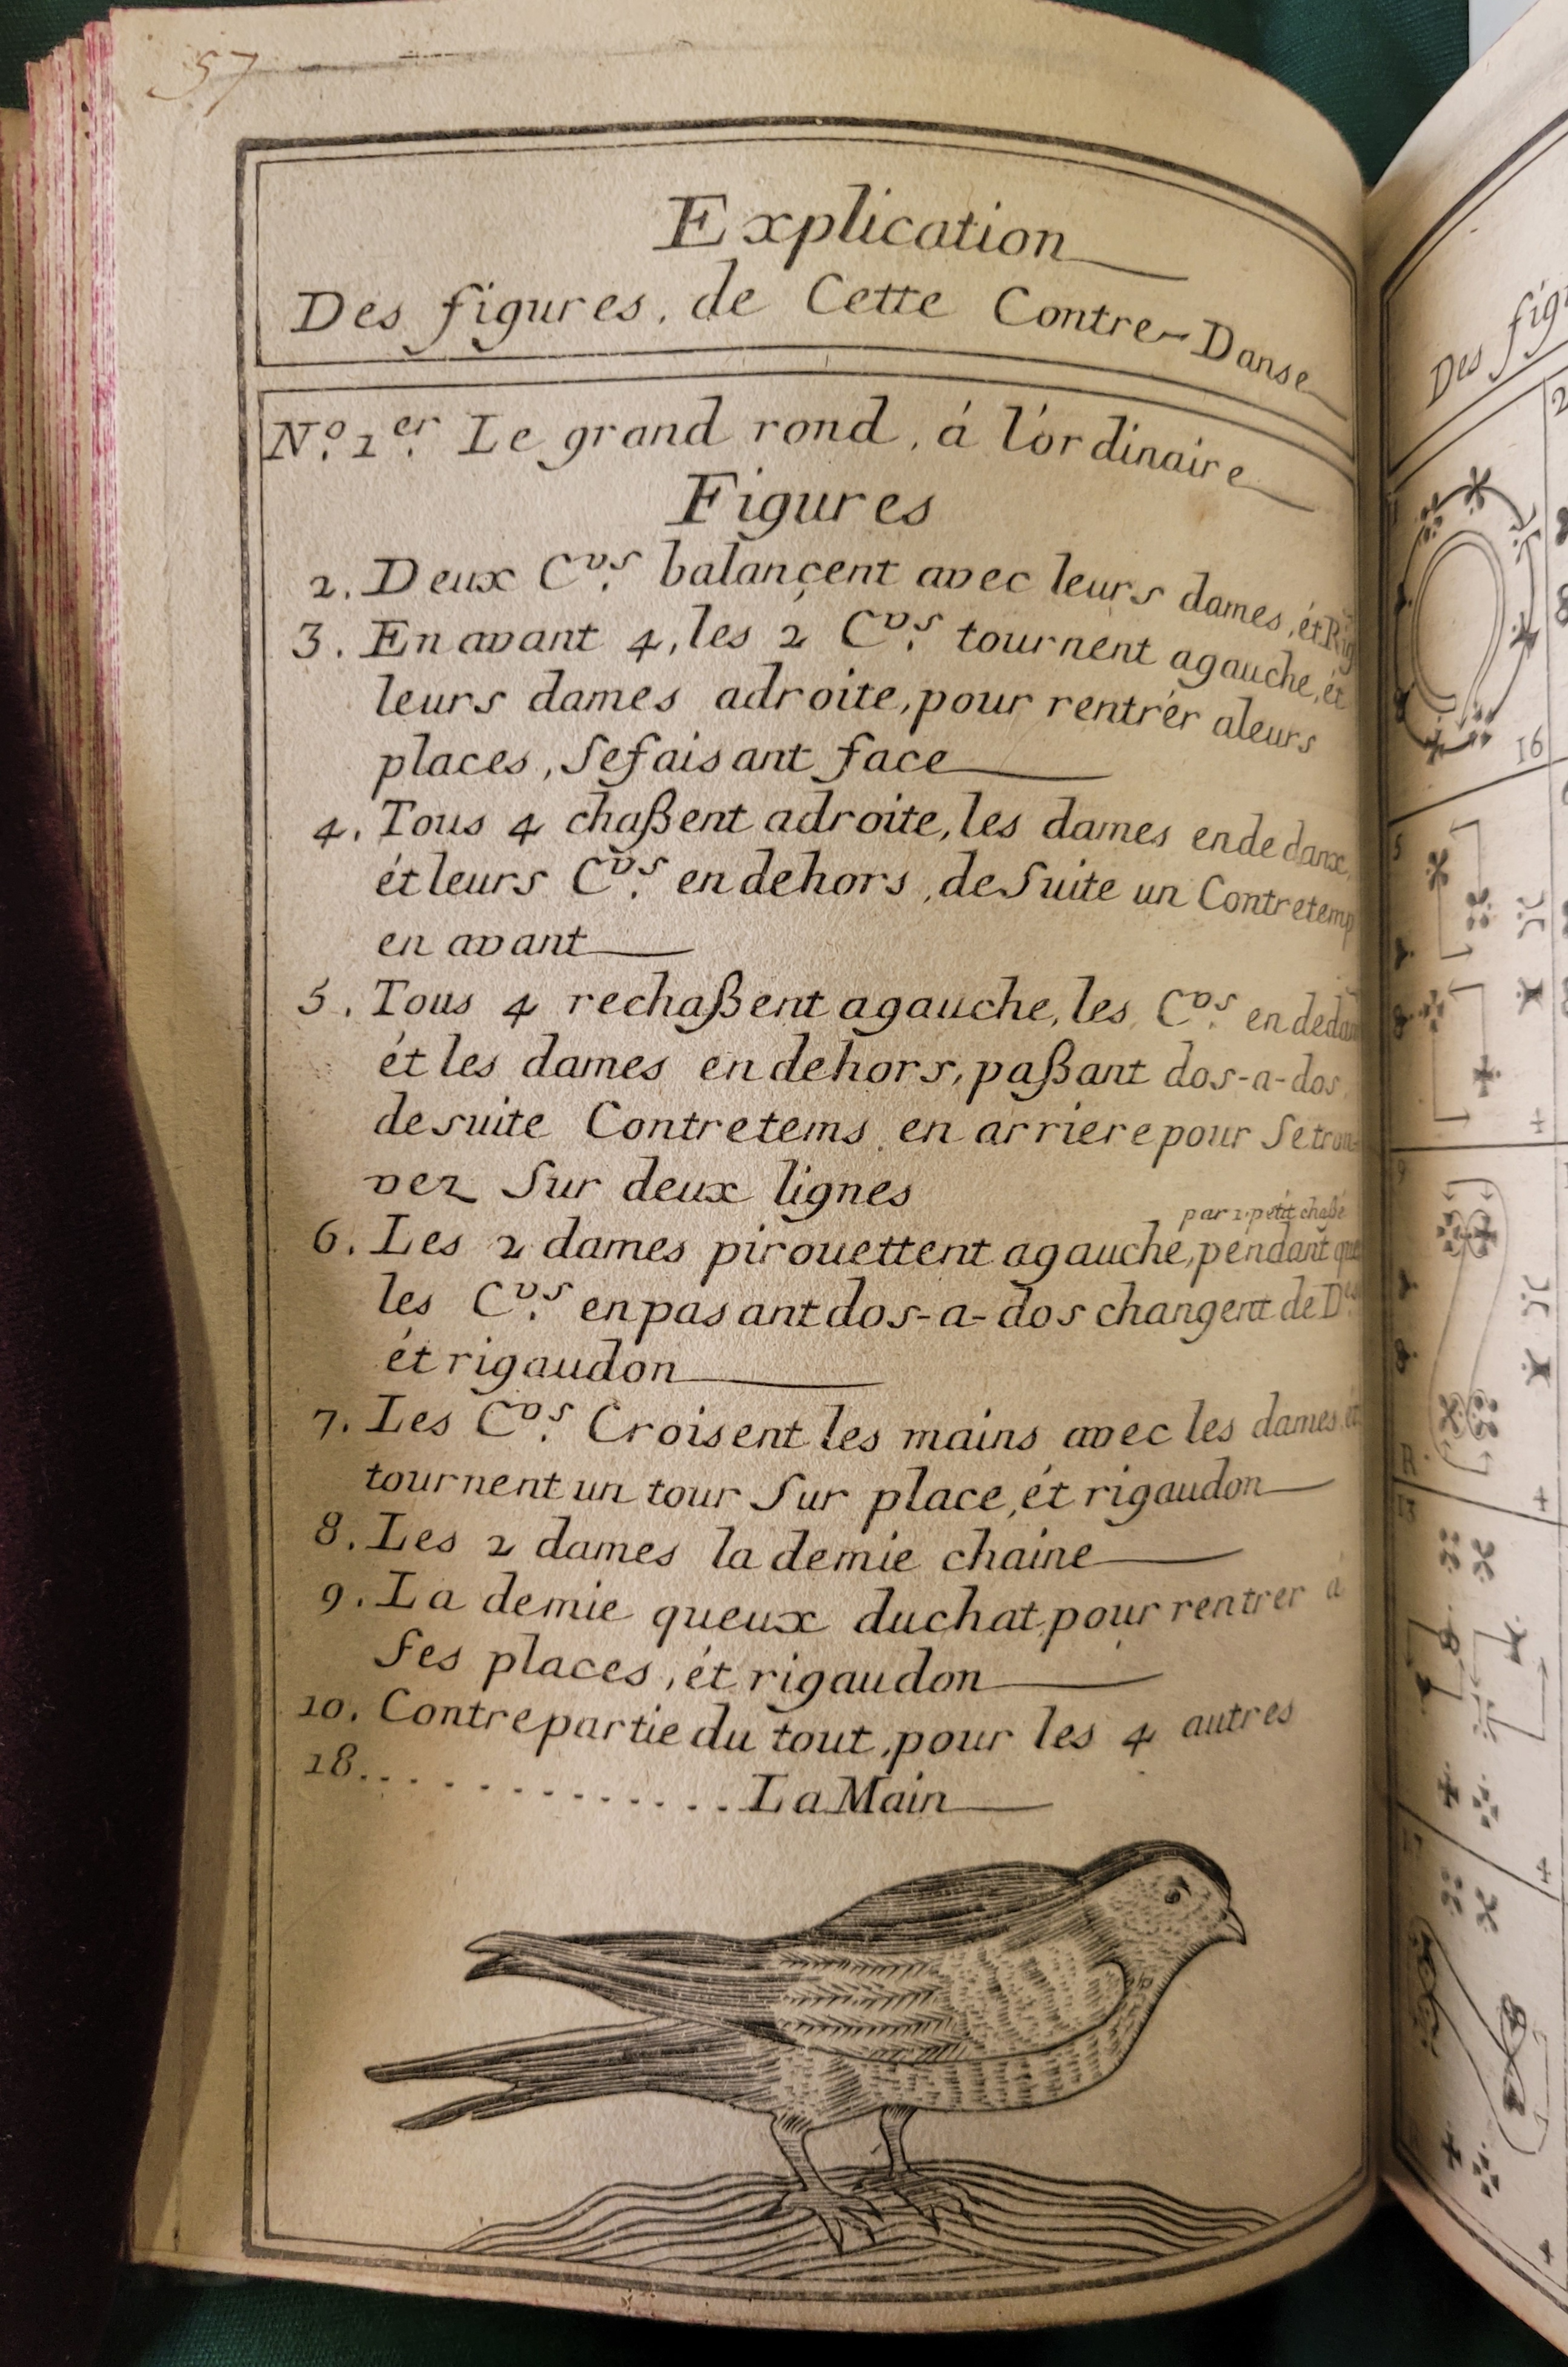 57
Explication
Des figures, de Cette Contre-Danse
N.º 1.er Le grand rond, á l'ór dinaire
Figures
2. Deux C.vs balançent avec leurs dames, ét Rig
3. En avant 4, les 2 C.vs tournent agauche, ét
leurs dames adroite, pour rentrér aleurs
places, Sefaisant face
4. Tous 4 chaßent adroite, les dames endedans,
ét leurs C.vs endehors, deSuite un Contretemp
en avant
5. Tous 4 rechaßent agauche, les C.vs endedan
ét les dames endehors, paßant dos-a-dos
desuite Contretems en arriere pour Setrou-
vez Sur deux lignes
par 1. petit chaßé
6. Les 2 dames pirouettent agauche, péndant que
les C.vs enpasant dos-a-dos changent de D.es
ét rigaudon
7. Les C.vs Croisent les mains avec les dames ét
tournent un tour Sur place, ét rigaudon
8. Les 2 dames la demie chaine
9. La demie queux duchat, pour rentrer á
Ses places, ét rigaudon
10. Contrepartie du tout, pour les 4 autres
18. . . . . . . . . . . . . LaMain
Des fig
2
16
5
4
9
4
13
4
4